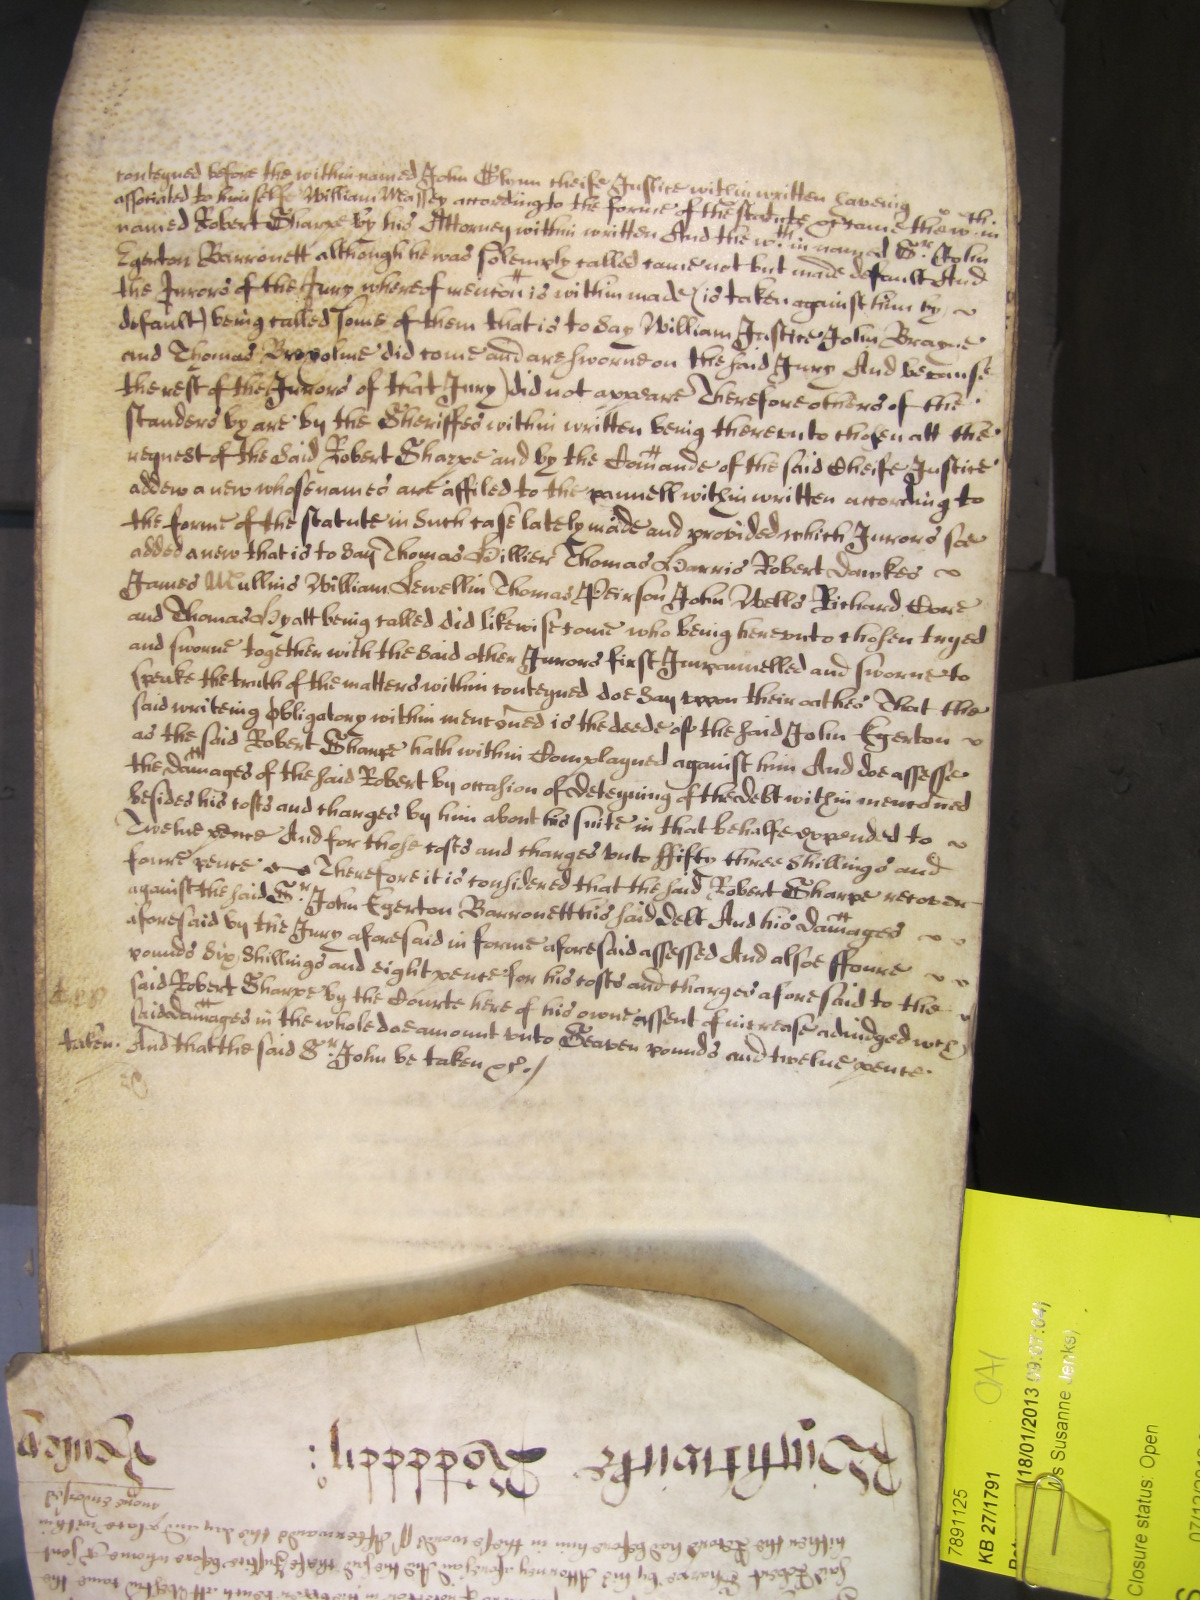 conteyned before the within named John Glynn cheife Justice within written haveing
associated to himselfe William Massey according to the forme of the statute &c came the wthin
named Robert Sharpe by his Attorney within written And the wthin named Sr. John
Egerton Barronett although he was solemply called came not but made default And
the Jurors of the Jury whereof mencon is within made (is taken against him by
default) being called some of them that is to say William Justice John Brayne
and Thomas did come and are sworne on the said Jury And because
the rest of the Jurors of that Jury) did not appeare Therefore others of the
standers by are by the Sheriffes within written being therevnto chosen att the
request of the said Robert Sharpe and by the Comande of the said Cheife Justice
added a new whose names are affiled to the pannell within written according to
the forme of the statute in such case lately made and provided which Jurors soe
added a new that is to say Thomas Hillier Thomas Harris Robert Dawkes
James Mullins William Lewellin Thomas Peirson John Wells Richard Core
and Thomas Hyatt being called did likewise come who being herevnto chosen tryed
and sworne together with the said other Jurors first Impannelled and sworne to
speake the truth of the matters within conteyned doe say vpon their oathes That the
said writeing obligatory within menconed is the deede of the said John Egerton
as the said Robert Sharpe hath within Complayned against him And doe assesse
the damages of the said Robert by occasion of deteyning of the debt within menconed
besides his costs and charges by him about his suite in that behalfe expended to
Twelve pence And for those costs and charges vnto ffifty three shillings and
foure pence Therefore it is considered that the said Robert Sharpe recover
against the said Sr. John Egerton Barronett his said debt And his damages
aforesaid by the Jury aforesaid in forme aforesaid assessed And alsoe ffoure
pounds six shillings and eight pence for his costs and charges aforesaid to the
said Robert Sharpe by the Courte here of his owne assent of increase adiudged wch
said damages in the whole doe amount vnto Seaven pounds and twelve pence
taken. And that the said Sr. John be taken &c./
7891125
KB 27/1791
(18/01/2013 09:57:04)
Susanne Jenks)
Closure status: Open